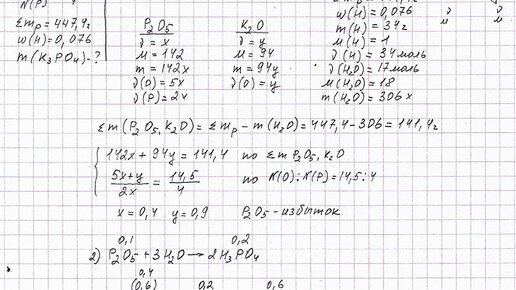 N(P) 4
Σmр = 447,4г
w(H) = 0,076
m(K₃PO₄) - ?
P₂O₅
ν = x
M = 142
m = 142x
ν(O) = 5x
ν(P) = 2x
K₂O
ν = y
M = 94
m = 94y
ν(O) = y
w(H) = 0,076
m(H) = 34г
M(H) = 1
ν(H) = 34моль
ν(H₂O) = 17моль
M(H₂O) = 18
m(H₂O) = 306г
Σm(P₂O₅, K₂O) = Σmр - m(H₂O) = 447,4 - 306 = 141,4г
142x + 94y = 141,4 по Σm P₂O₅, K₂O
5x+y / 2x = 14,5 / 4 по N(O) : N(P) = 14,5 : 4
x = 0,4 y = 0,9 P₂O₅ - избыток
0,1 0,2
2) P₂O₅ + 3H₂O → 2H₃PO₄
0,4
(0,6) 0,2 0,6